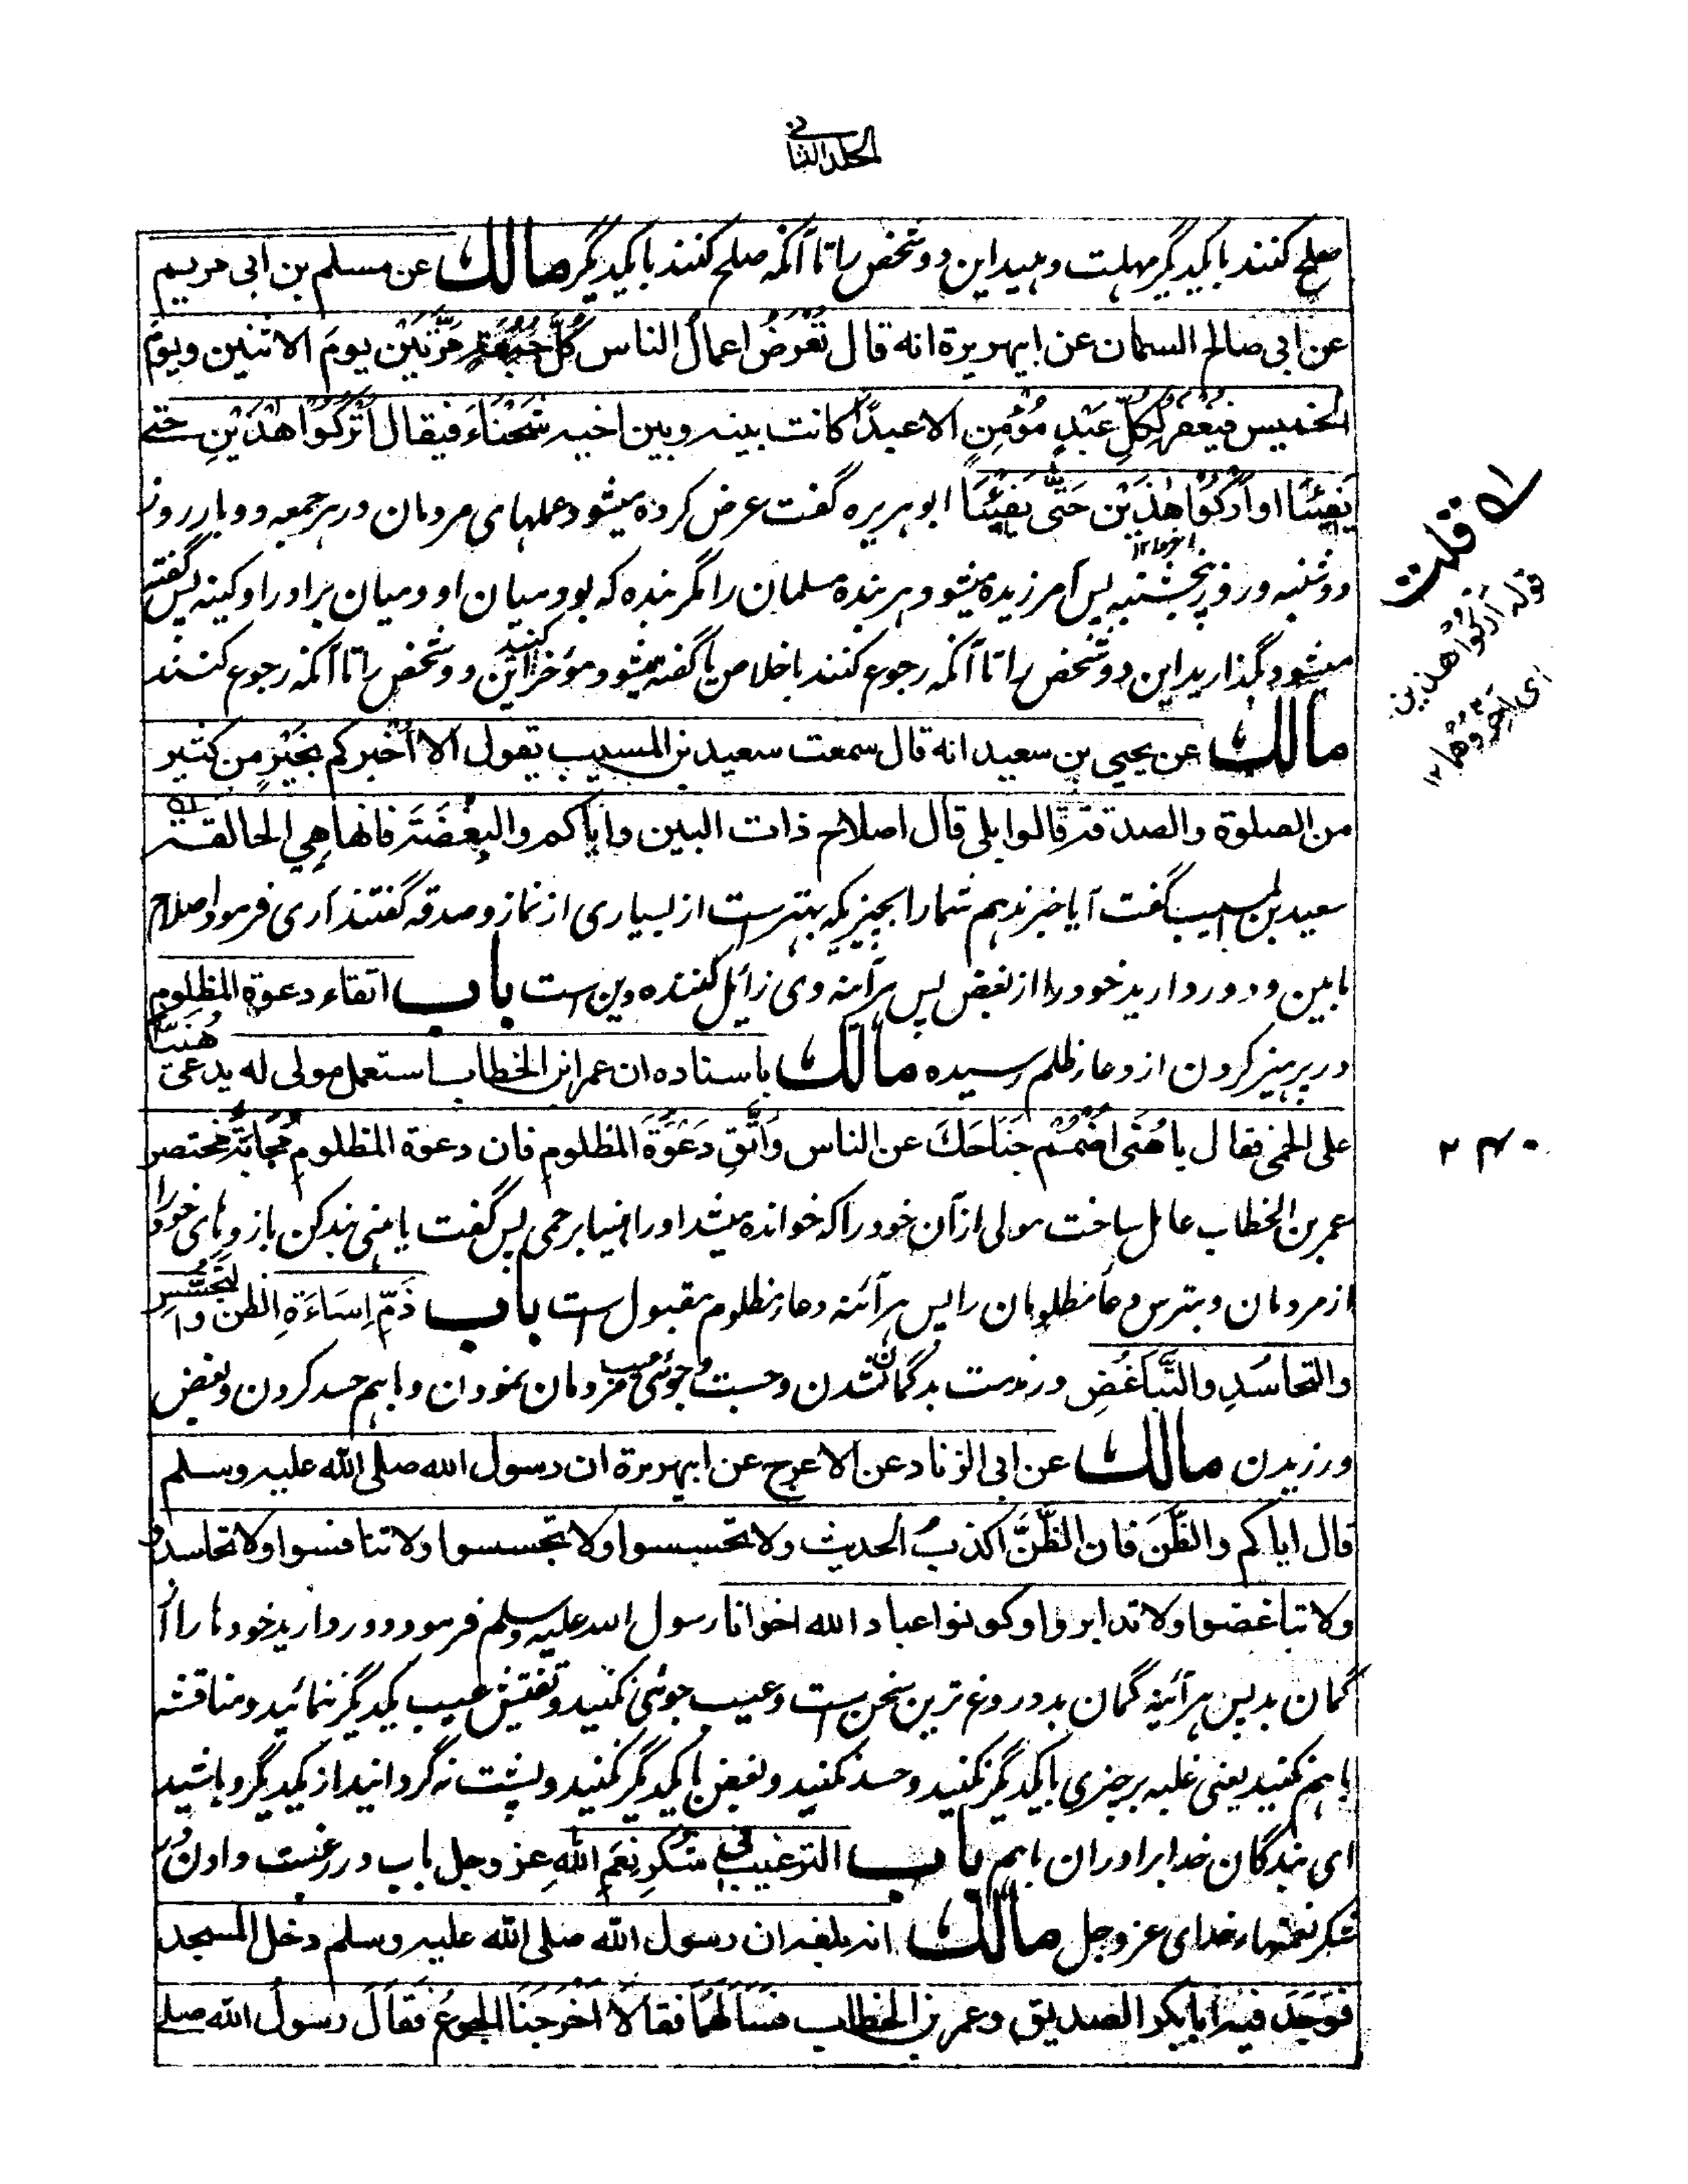 الجلد الثانی
صلح کنند با یکدیگر مهلت دهید این دو شخص را تا آنکه صلح کنند با یکدیگر مالك عن مسلم بن ابی مریم
عن ابی صالح السمان عن ابیهریرة انه قال تُعْرَضُ اعمالُ الناس کُلَّ جُمُعَةٍ مَرَّتَیْنِ یومَ الاثنین ویومَ
الخمیس فیُغفرُ لِکُلِّ عَبْدٍ مُؤْمِنٍ الا عبدًا کانت بینه وبین اخیه شَحْنَاءُ فیقال اتْرُکُوْا هٰذَیْنِ حتے
یَفِیْئَا او اُرْکُوْا هٰذَیْنِ حَتّٰی یَفِیْئَا ابو هریره گفت عرض کرده میشود عملهای مردمان در هر جمعه دو بار روز
اخروا ۱۲
دوشنبه و روز پنجشنبه پس آمرزیده میشود هر بندهٔ مسلمان را مگر بنده که بود میان او و میان برادر او کینه پس گفته
میشود بگذارید این دو شخص را تا آنکه رجوع کنند باخلاص یا گفته میشود مؤخر کنید این دو شخص را تا آنکه رجوع کنند
مالك عن یحیی بن سعید انه قال سمعت سعید بن المسیب یقول الا اُخْبِرکم بِخَیْرٍ من کثیر
من الصلوة والصدقة قالوا بلی قال اصلاح ذات البین وایاکم والبِغْضَةَ فانها هِیَ الحالقة
سعید بن المسیب گفت آیا خبر ندهم شما را بچیزیکه بهترست از بسیاری از نماز و صدقه گفتند آری فرمود اصلاح
مابین و دور دارید خود را از بغض پس هرآینه وی زائل کننده دین است باب اتقاء دعوة المظلوم
در پرهیز کردن از دعاء ظلم رسیده مالك باسناده ان عمر بن الخطاب استعمل مولی له یدعی هُنَیًّا
علی الحمی فقال یا هُنَی اضْمُمْ جَنَاحَكَ عن الناس وَاتَّقِ دَعْوَةَ المظلوم فان دعوة المظلوم مُجَابَةٌ مختصر
عمر بن الخطاب عامل ساخت مولی از آن خود را که خوانده میشد او را هنیا بر حمی پس گفت یا هنی بند کن بازوهای خود را
از مردمان و بترس دعاء مظلومان را پس هرآئنه دعاء مظلوم مقبول است باب ذَمّ اِسَاءَةِ الظن والتَّجَسُّسِ
والتحاسُدِ والتَّباغُضِ در مذمت بدگمان شدن و جست و جوئی عیب مردمان نمودن و باهم حسد کردن و بغض
ورزیدن مالك عن ابی الزناد عن الاعرج عن ابیهریرة ان رسول الله صلی الله علیه وسلم
قال ایاکم والظَّنَ فان الظَّنَّ اکذبُ الحدیث ولا تحسسوا ولا تجسسوا ولا تنافسوا ولا تحاسدوا
ولا تباغضوا ولا تدابروا وکونوا عباد الله اخوانا رسول الله علیه وسلم فرمود دور دارید خودها را از
گمان بد پس هرآئینه گمان بد دروغ ترین سخن است و عیب جوئی نکنید و تفتیش عیب یکدیگر ننمائید و مناقشه
باهم نکنید یعنی غلبه بر چیزی با یکدیگر نکنید و حسد نکنید و بغض با یکدیگر نکنید و پشت نه گردانید از یکدیگر و باشید
ای بندگان خدا برادران باهم باب الترغیب فی شکرِ نِعَمِ اللهِ عز وجل باب در رغبت دادن در
شکر نعمتهاء خدای عز وجل مالك انه بلغه ان رسول الله صلی الله علیه وسلم دخل المسجد
فَوَجَدَ فیه ابابکر الصدیق وعمر بن الخطاب فسَاَلَهُمَا فقالَا اَخْرَجَنَا الجوعُ فَقَالَ رسولُ الله صلے
قلت
قوله اُرْکُوْا هذین
ای اَخِّرُوْهُمَا ۱۲